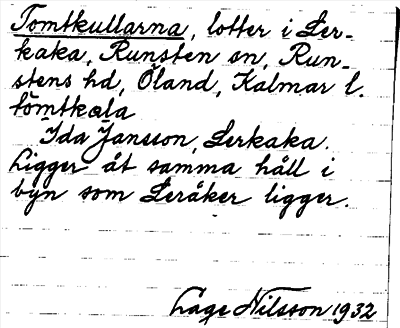 Tomtkullarna, lotter i Ler-
kaka, Runsten sn, Run-
stens hd, Öland, Kalmar l.
tömtkala
Ida Jansson, Lerkaka.
Ligger åt samma håll i
byn som Leråker ligger.
Lage Nilsson 1932